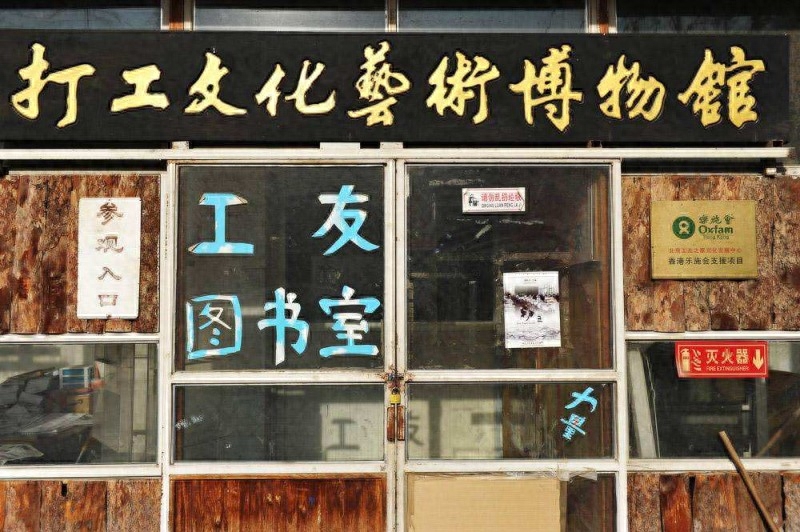 打工文化藝術博物館
参观入口
工友
图书室
请勿乱扔垃圾
樂施會
Oxfam
Hong Kong
香港乐施会支援项目
灭火器
FIRE EXTINGUISHER
力量
工友